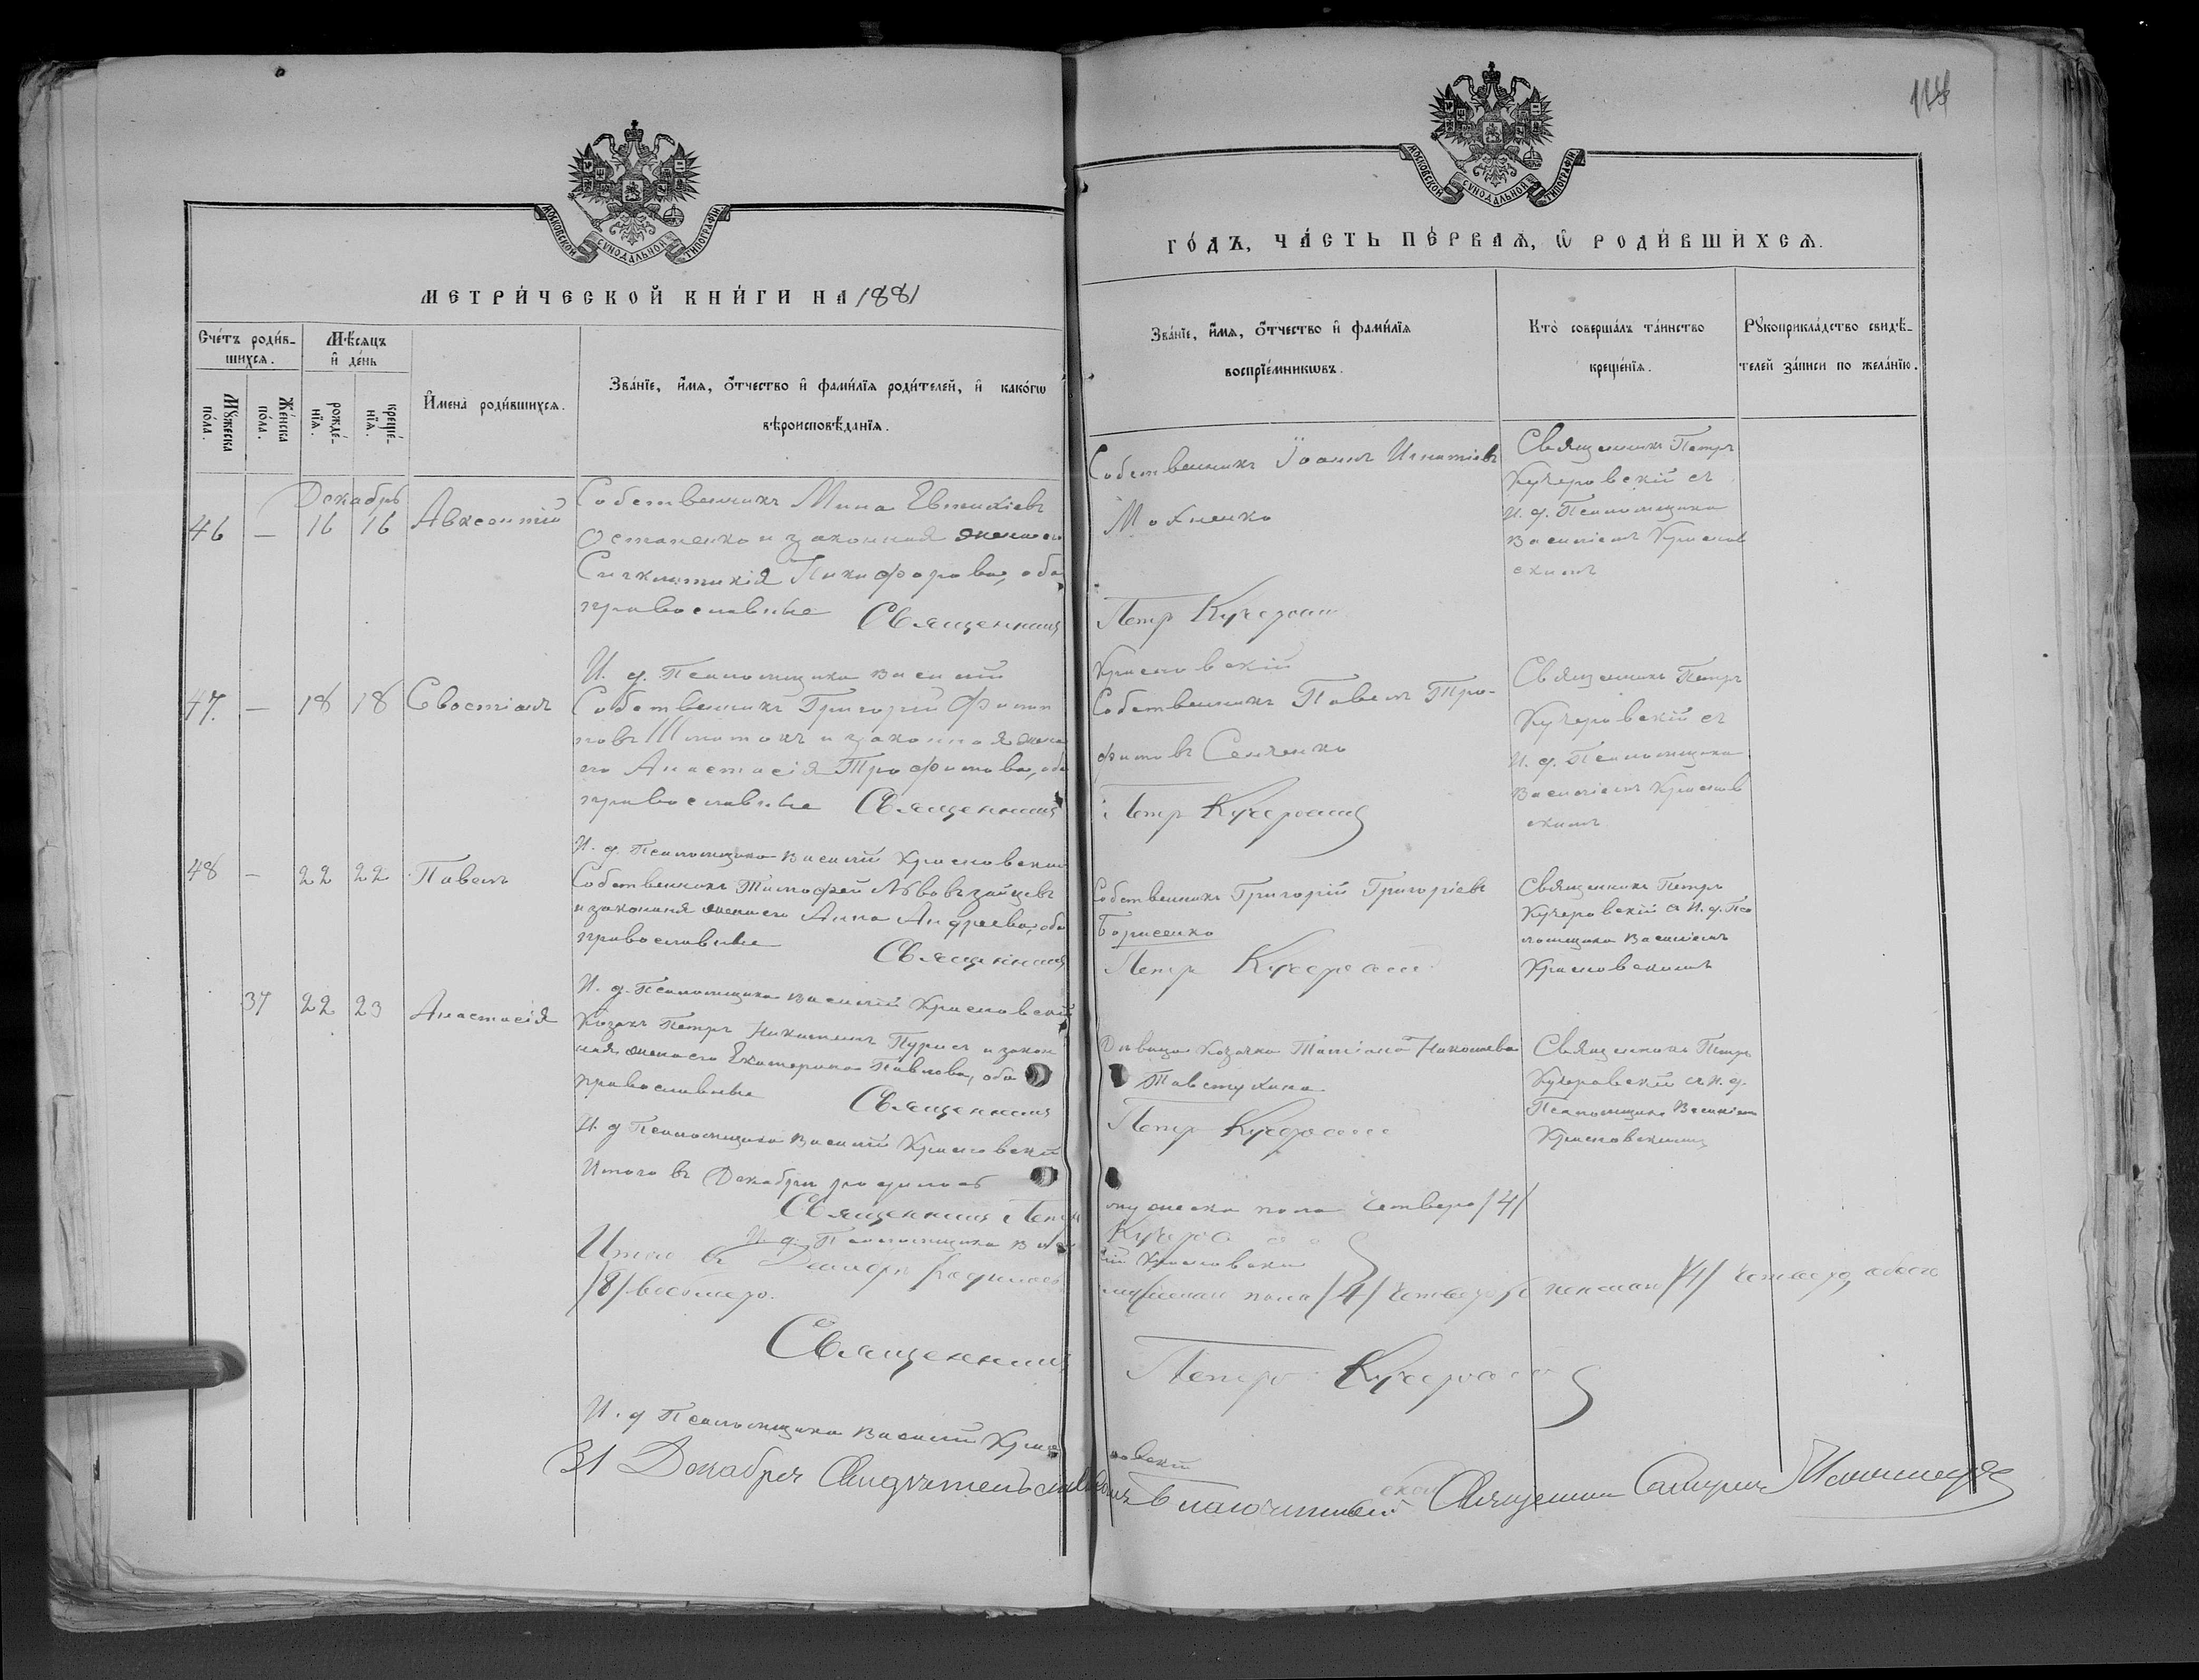 114
МОСКОВСКОЙ СУНОДАЛЬНОЙ ТИПОГРАФІИ.
МЕТРИ́ЧЕСКОЙ КНИ́ГИ НА 1881
Сче́тъ роди́в-
шихся.
Мѣ́сяцъ
и҆ де́нь
Мꙋ́жеска
по́ла.
Же́нска
по́ла.
рожде́-
нїя.
креще́-
нїя.
И҆мена̀ роди́вшихся.
Зва́нїе, и҆́мя, ѻ҆́тчество и҆ фами́лїя роди́телей, и҆ како́гѡ
вѣроисповѣ́данїя.
Декабрь
46 — 16 16 Авксентій
Собственникъ Мина Евтихіевъ
Остапенко и законная жена его
Синклитикія Никифорова, оба
православные
Священникъ
И. д. Псаломщика Василій
47. — 18 18 Евостіанъ
Собственникъ Григорій Филип
повъ и законная жена
его Анастасія Трофимова, оба
православные Священникъ
И. д. Псаломщика Василій Красновскій
48 — 22 22 Павелъ
Собственникъ Тимофей Львовъ Зайцевъ
и законная жена его Анна Андреева, оба
православные
Священникъ
И. д. Псаломщика Василій Красновскій
37 22 23 Анастасія
Козакъ Петръ Никитинъ и закон
ная жена его Екатерина Павлова, оба
православные
Священникъ
И. д Псаломщика Василій Красновскій
Итого въ Декабрѣ родилось
Священникъ Петръ
И. д. Псаломщика Васи
Итого въ Декабрѣ родилось
/8/ восьмеро.
Священникъ
И. д Псаломщика Василій Крас
31 Декабря
МОСКОВСКОЙ СУНОДАЛЬНОЙ ТИПОГРАФІИ.
ГО́ДЪ, ЧА́СТЬ ПЕ́РВАЯ, Ѡ҆ РОДИ́ВШИХСЯ.
Зва́нїе, и҆́мя, ѻ҆́тчество и҆ фами́лїя
воспрїе́мникѡвъ.
Кто̀ соверша́лъ та́инство
креще́нїя.
Рꙋкоприкла́дство свидѣ́-
телей за́писи по жела́нїю.
Собственникъ Іоаннъ Игнатіевъ
Махненко
Петръ Кучеровскій
Священникъ Петръ
Кучеровскій съ
И. д. Псаломщика
Василіемъ Краснов
скимъ
Красновскій
Собственникъ Павелъ Тро-
фимовъ Семенко
Петръ Кучеровскій
Священникъ Петръ
Кучеровскій съ
И. д. Псаломщика
Василіемъ Краснов
скимъ
Собственникъ Григорій Григоріевъ
Борисенко
Петръ Кучеровскій
Священникъ Петръ
Кучеровскій съ И. д. Пса
ломщика Василіемъ
Красновскимъ
Дѣвица Козачка Татіана
Петръ Кучеровскій
Священникъ Петръ
Кучеровскій съ И. д.
Псаломщика Василіемъ
Красновскимъ
мужеска пола четверо /4/
Кучеровскій
лій Красновскій
мужеска пола /4/ четверо, женска /4/ четверо, обоего
Петръ Кучеровскій
новскій
Благочинный Священникъ